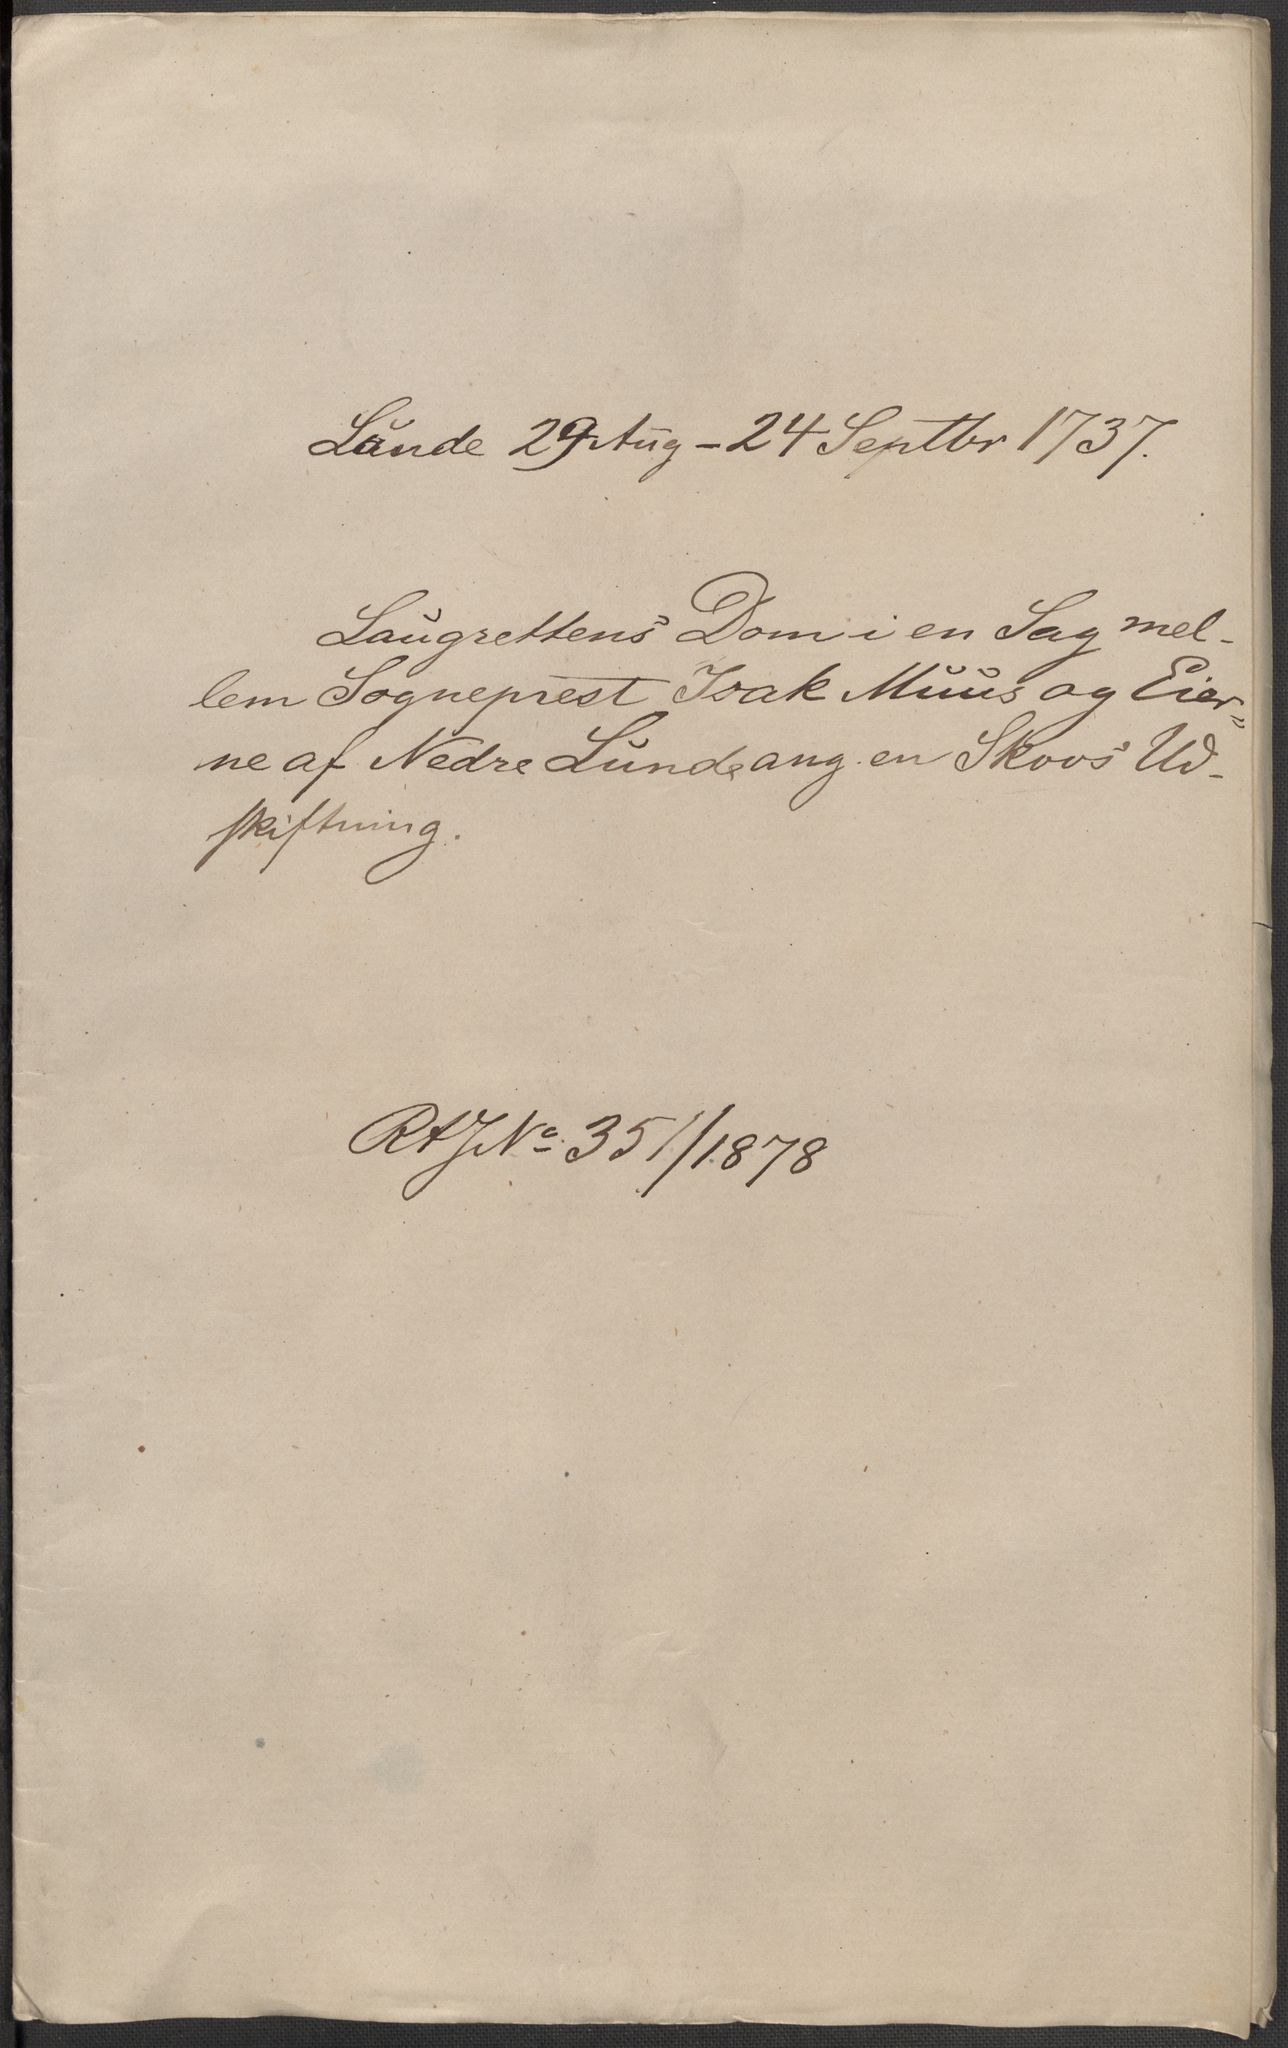 Lunde 29 Aug - 24 Septbr 1737.
Laugrettens Dom i en Sag mel-
lem Sogneprest Isak Muus og Eier-
ne af Nedre Lunde ang. en Skovs Ud-
skiftning.
RAJNo. 351/1878